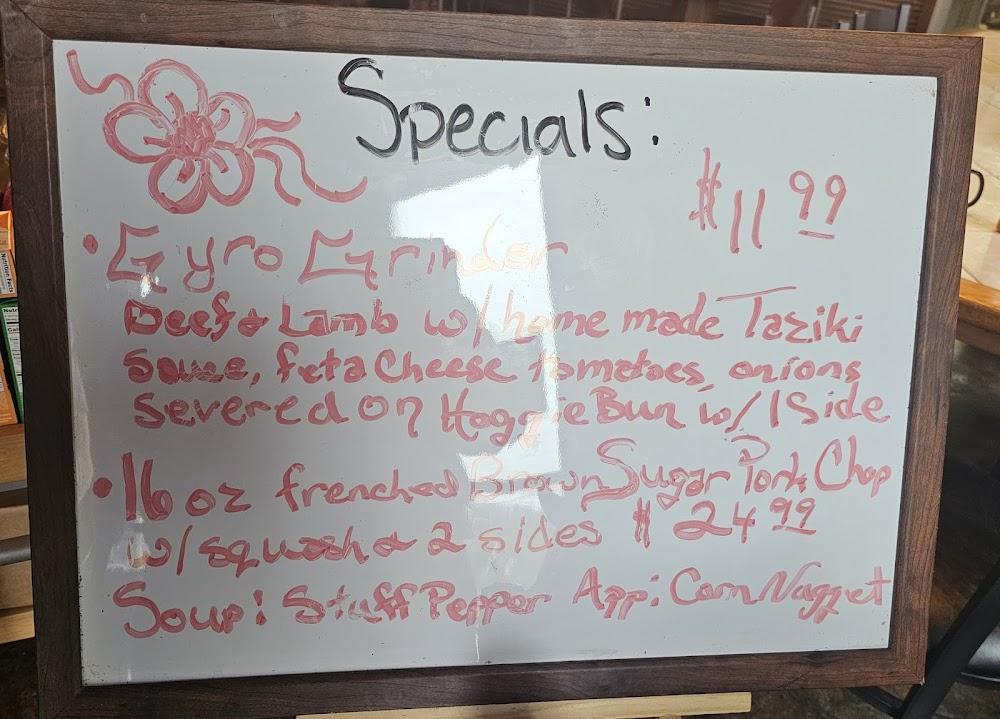 Specials:
$11 99
• Gyro Grinder
Beef & Lamb w/ home made Taziki
Sauce, feta Cheese tomatoes, onions
Severed on Hoggie Bun w/ 1 Side
• 16 oz frenched Brown Sugar Pork Chop
w/ squash & 2 sides $ 24 99
Soup: Stuff Pepper App: Corn Nugget